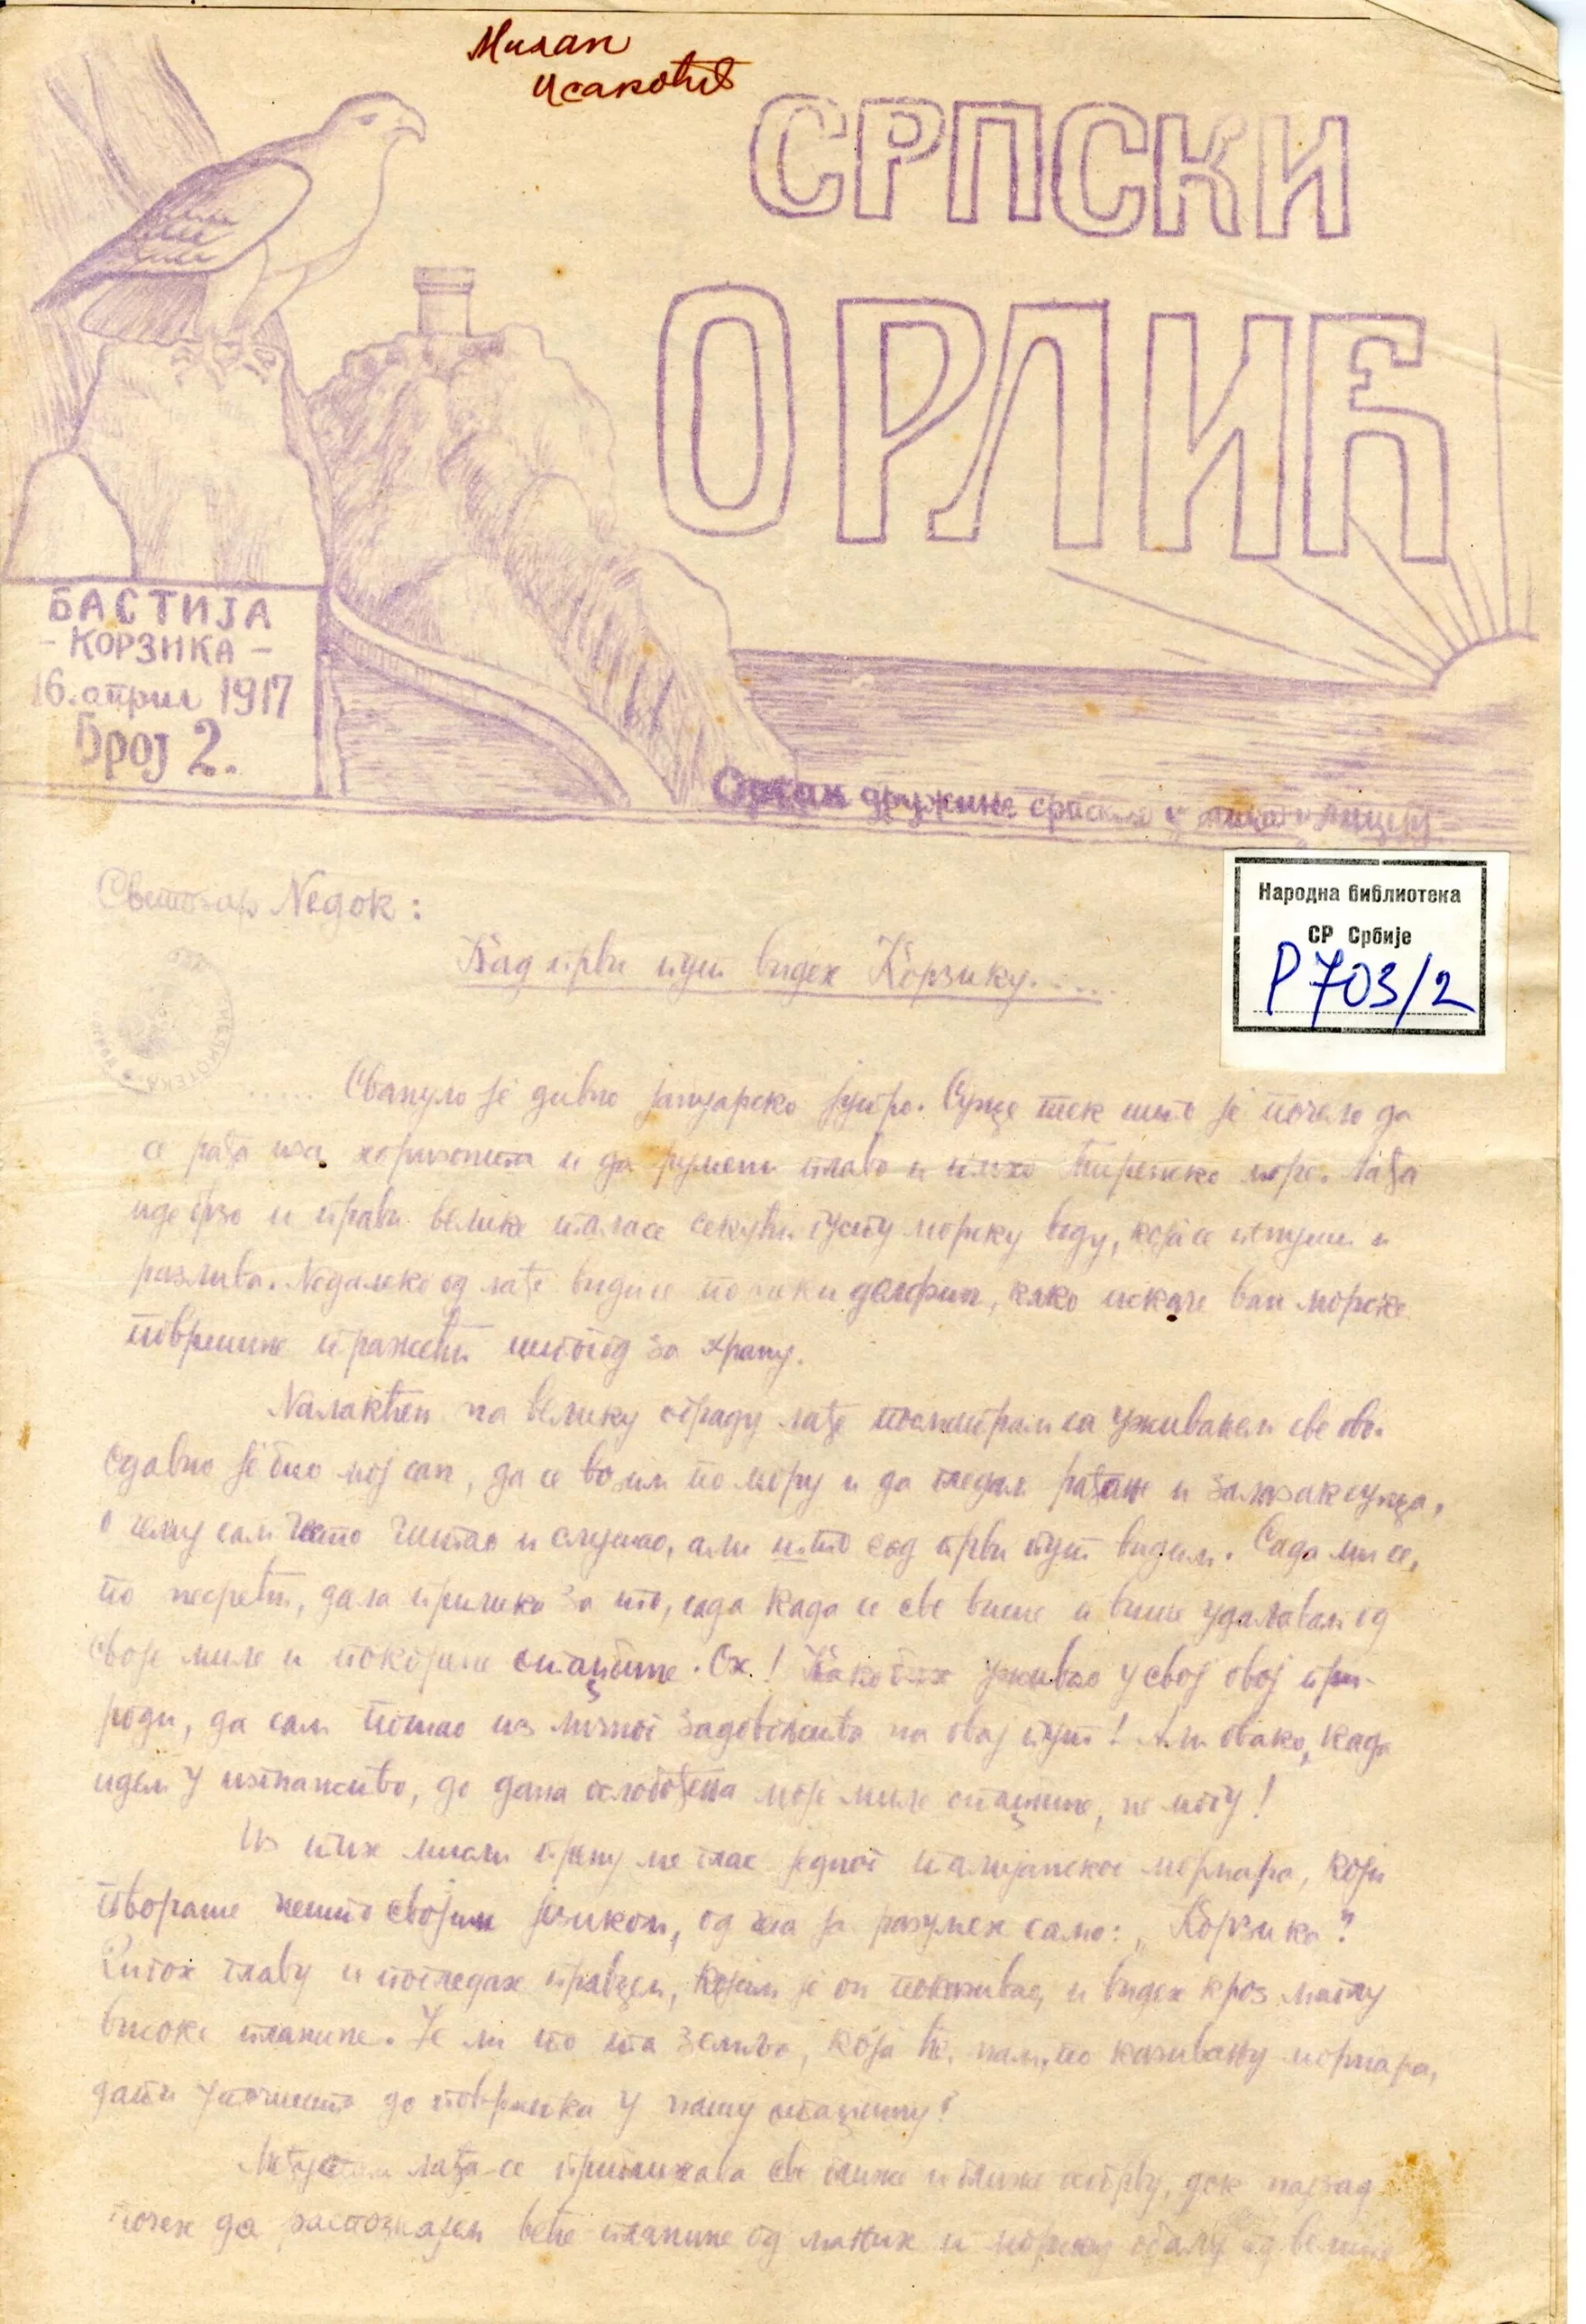 Милан
Исаковић
СРПСКИ
ОРЛИЋ
БАСТИЈА
- КОРЗИКА -
16. април 1917
Број 2.
Орган дружине српских ђака у Лицеју
Светозар Недок:
Кад први пут видех Корзику.....
Народна библиотека
СР Србије
Р 703/2
..... Свануло је дивно јануарско јутро. Сунце тек што је почело да
се рађа иза хоризонта и да румени плаво и тихо Тиренско море. Лађа
иде брзо и прави велике таласе секући густу морску воду, која се пенуши и
разлива. Недалеко од лађе види се по неки делфин, како искаче ван морске
површине тражећи штогод за храну.
Налакћен на велику ограду лађе посматрам са уживањем све ово.
Одавно је био мој сан, да се возим по мору и да гледам рађање и залазак сунца,
о чему сам често читао и слушао, али што сад први пут видим. Сада ми се,
по несрећи, дала прилика за то, сада када се све више и више удаљавам од
своје миле и покојне отаџбине. Ох! Како бих уживао у свој овој при-
роди, да сам пошао из личног задовољства на овај пут! Али овако, када
идем у изгнанство, до дана ослобођења моје миле отаџбине, не могу!
Из тих мисли трже ме глас једног италијанског морнара, који
говораше нешто својим језиком, од чега ја разумех само: „Корзика“
Дигох главу и погледах правцем, којим је он показивао, и видех кроз маглу
високе планине. Је ли то та земља, која ће, нам, по казивању морнара,
дати уточишта до повратка у нашу отаџбину?
Међутим лађа се приближавала све ближе и ближе острву, док најзад
почех да распознајем веће планине од мањих и морску обалу од велике